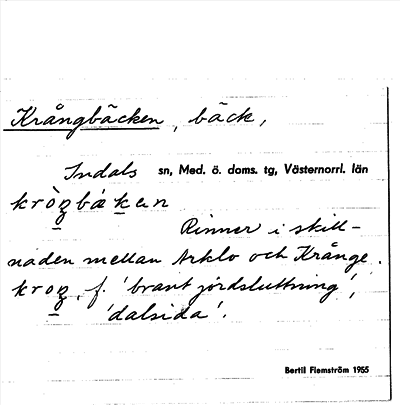 Krångbäcken, bäck,
Indals sn, Med. ö. doms. tg, Västernorrl. län
kròŋbákan
Rinner i skill-
naden mellan Arklo och Krånge.
kroŋ, f. 'brant jordsluttning',
'dalsida'.
Bertil Flemström 1955